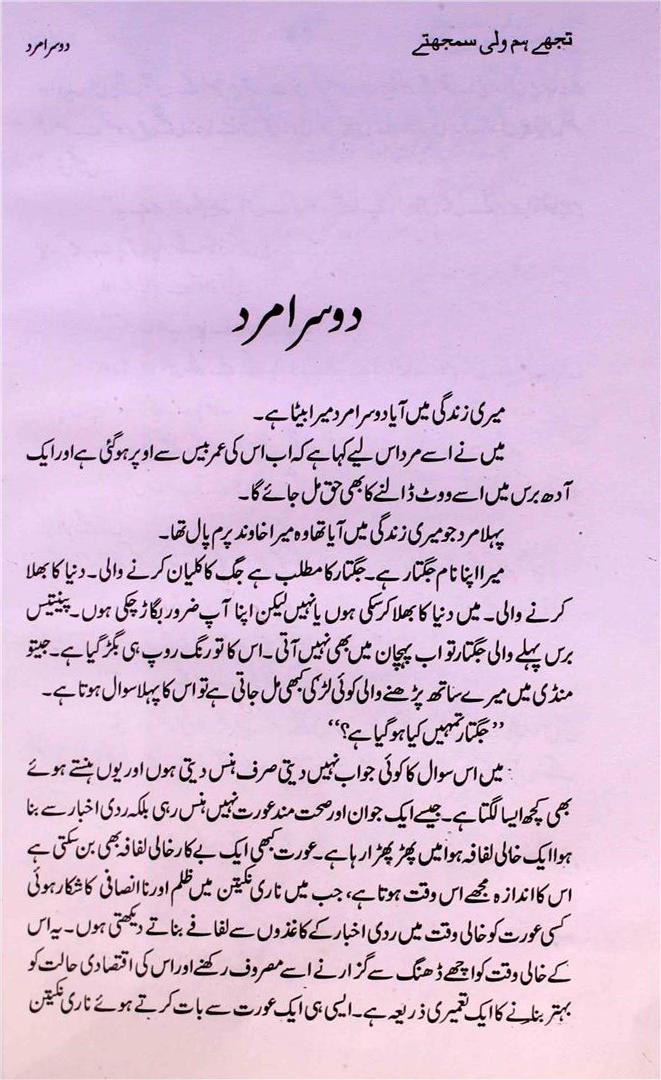 تجھے ہم ولی سمجھتے
دوسرا مرد
دوسرا مرد
میری زندگی میں آیا دوسرا مرد میرا بیٹا ہے۔
میں نے اسے مرد اس لیے کہا ہے کہ اب اس کی عمر بیس سے اوپر ہو گئی ہے اور ایک
آدھ برس میں اسے ووٹ ڈالنے کا بھی حق مل جائے گا۔
پہلا مرد جو میری زندگی میں آیا تھا وہ میرا خاوند پرم پال تھا۔
میرا اپنا نام جگتار ہے۔ جگتار کا مطلب ہے جگ کا کلیان کرنے والی۔ دنیا کا بھلا
کرنے والی۔ میں دنیا کا بھلا کر سکی ہوں یا نہیں لیکن اپنا آپ ضرور بگاڑ چکی ہوں۔ پینتیس
برس پہلے والی جگتار تو اب پہچان میں بھی نہیں آتی۔ اس کا تو رنگ روپ ہی بگڑ گیا ہے۔ جیتو
منڈی میں میرے ساتھ پڑھنے والی کوئی لڑکی کبھی مل جاتی ہے تو اس کا پہلا سوال ہوتا ہے۔
’’جگتار تمہیں کیا ہو گیا ہے؟‘‘
میں اس سوال کا کوئی جواب نہیں دیتی صرف ہنس دیتی ہوں اور یوں ہنستے ہوئے
بھی کچھ ایسا لگتا ہے۔ جیسے ایک جوان اور صحت مند عورت نہیں ہنس رہی بلکہ ردی اخبار سے بنا
ہوا ایک خالی لفافہ ہوا میں پھڑ پھڑا رہا ہے۔ عورت کبھی ایک بے کار خالی لفافہ بھی بن سکتی ہے
اس کا اندازہ مجھے اس وقت ہوتا ہے، جب میں ناری نکیتن میں ظلم اور نا انصافی کا شکار ہوئی
کسی عورت کو خالی وقت میں ردی اخبار کے کاغذوں سے لفافے بناتے دیکھتی ہوں۔ یہ اس
کے خالی وقت کو اچھے ڈھنگ سے گزارنے اسے مصروف رکھنے اور اس کی اقتصادی حالت کو
بہتر بنانے کا ایک تعمیری ذریعہ ہے۔ ایسی ہی ایک عورت سے بات کرتے ہوئے ناری نکیتن